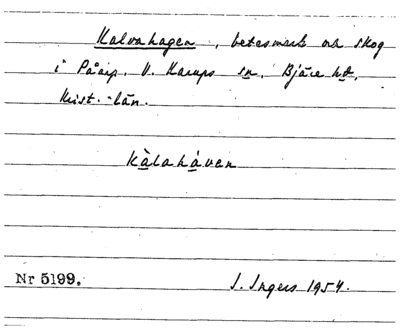 Kalvahagen, betesmark och skog
i Påarp, V. Karups sn, Bjäre hd,
Krist. län.
kàlahávan
Nr 5199.
I. Ingers 1954.